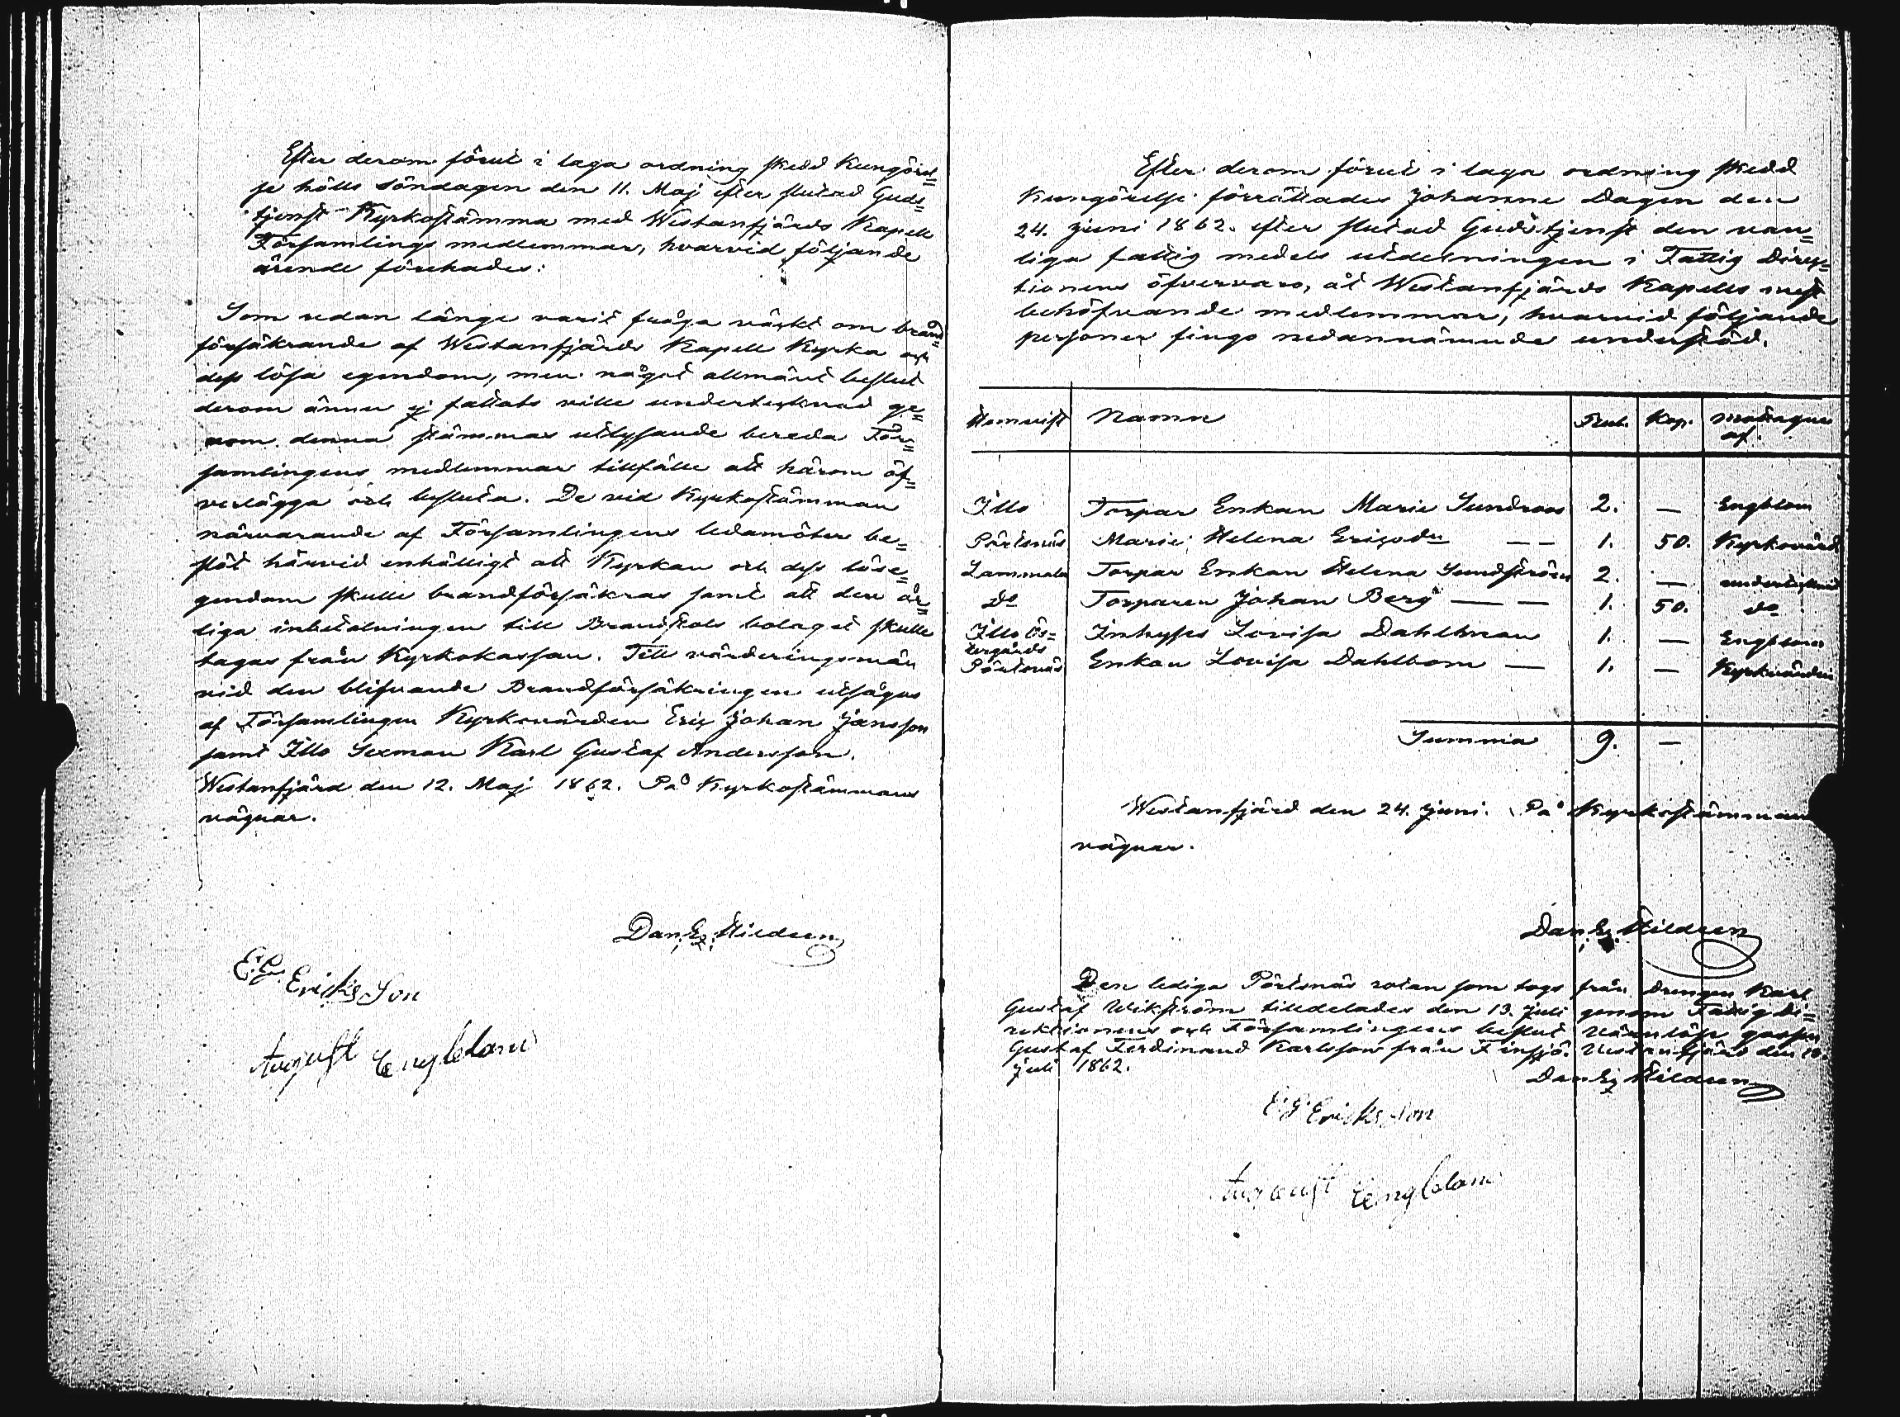 Efter derom förut i laga ordning skedd Kungörel=
se hölls Söndagen den 11. Maj efter slutad Guds=
tjenst Kyrkostämma med Westanfjärds Kapell
Församlings medlemmar, hvarvid följande
ärende förehades:
Som redan länge varit fråga väckt om brand=
försäkrande af Westanfjärds Kapell Kyrka och
dess lösa egendom, men något allmänt beslut
derom ännu ej fattats ville undertecknad ge=
nom denna stämmas utlysande bereda För=
samlingens medlemmar tillfälle att härom öf=
verlägga och besluta. De vid Kyrkostämman
närvarande af Församlingens ledamöter be=
slöt härvid enhälligt att Kyrkan och dess löse=
gendom skulle brandförsäkras samt att den år=
liga inbetalningen till Brandstods bolaget skulle
tagas från Kyrkokassan. Till värderingsmän
vid den blifvande Brandförsäkringen utsågos
af Församlingen Kyrkovärden Eric Johan Jansson
samt Illo Sexman Karl Gustaf Andersson.
Westanfjärd den 12. Maj 1862. På Kyrkostämmans
vägnar.
Dan. Ej. Hildeen
E. G. Ericks Son
August Engblom
Efter derom förut i laga ordning skedd
Kungörelse förrättades Johanne Dagen den
24. Juni 1862. efter slutad Gudstjenst den van=
liga fattig medels utdelningen i Fattig Direk=
tionens öfvervaro, åt Westanfjärds Kapells mest
behöfvande medlemmar, hvarvid följande
personer fingo nedannämnde understöd.
Hemvist Namn Rub. Kop. Mottagne af.
Illo Torpar Enkan Maria Sundroos 2. — Engblom
Pörtsnäs Maria Helena Ericsdr — — 1. 50. Kyrkovärd
Lammala Torpar Enkan Helena Sundström 2. — undertecknad
Do Torparen Johan Berg — — 1. 50. do
Illo Ös= Inhyses Lovisa Dahlman 1. — Engblom
tergårds
Pörtsnäs Enkan Lovisa Dahlbom — 1. — Kyrkvärden
Summa 9. —
Westanfjärd den 24. Juni. På Kyrkostämmans
vägnar.
Dan. Ej. Hildeen
Den lediga Pörtsnäs rotan som togs från drengen Karl
Gustaf Wikström tilldelades den 13. Juli genom Fattig di=
rektionens och Församlingens beslut värnlöse gossen
Gustaf Ferdinand Karlsson från Finsjö. Westanfjärd den
Juli 1862.
Dan Ej Hildeen
E. G. Ericks Son
August Engblom